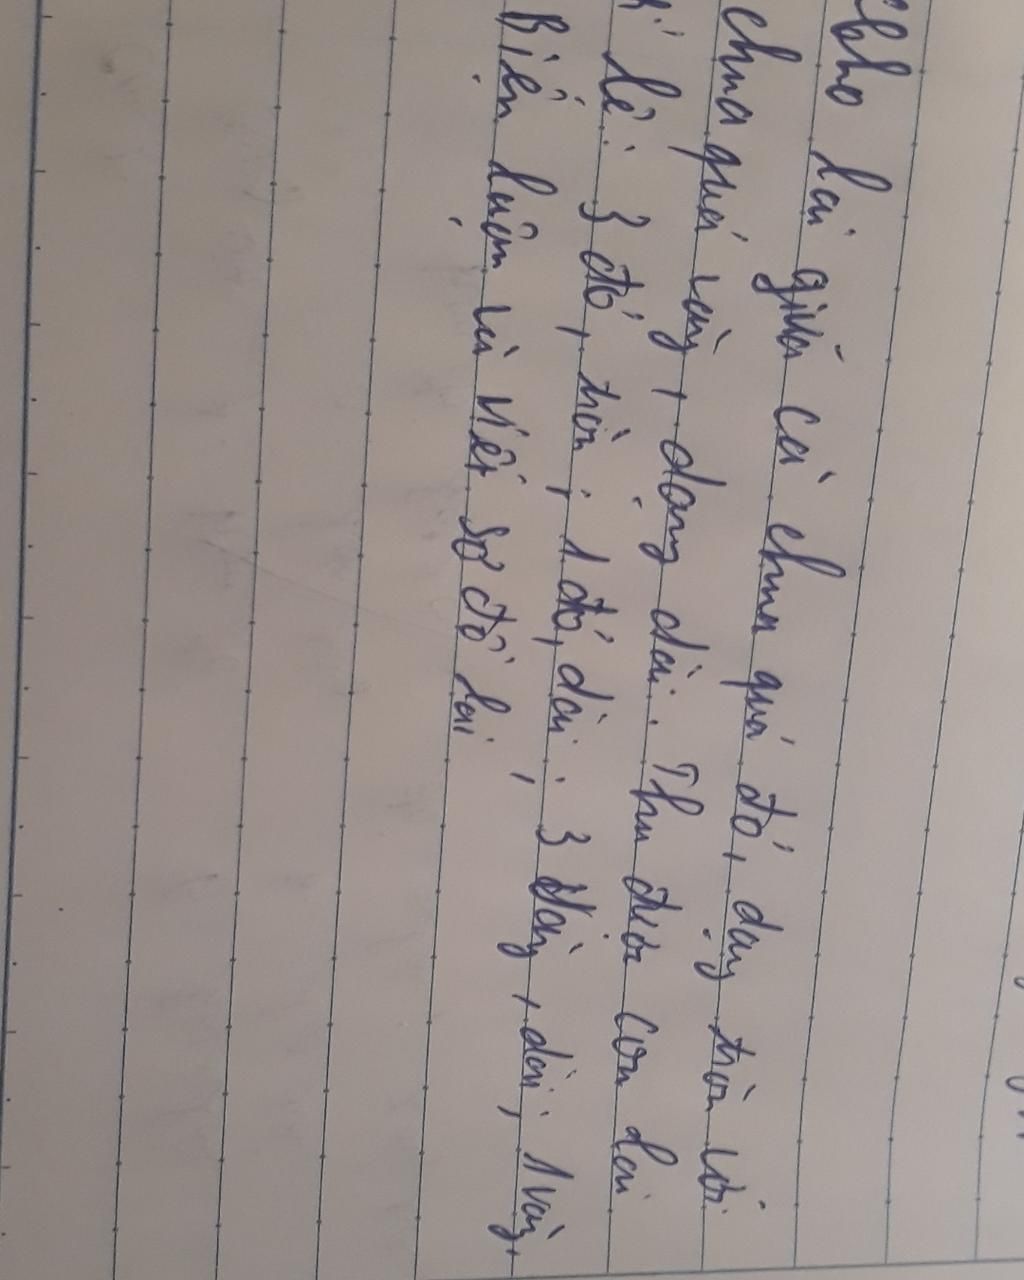 Cho lai giữa cà chua quả đỏ, dạng tròn với
chua quả vàng, dạng dài. Thu được con lai
lệ: 3 đỏ, tròn; 1 đỏ, dài; 3 vàng, dài; 1 vàng,
Biện luận và viết sơ đồ lai